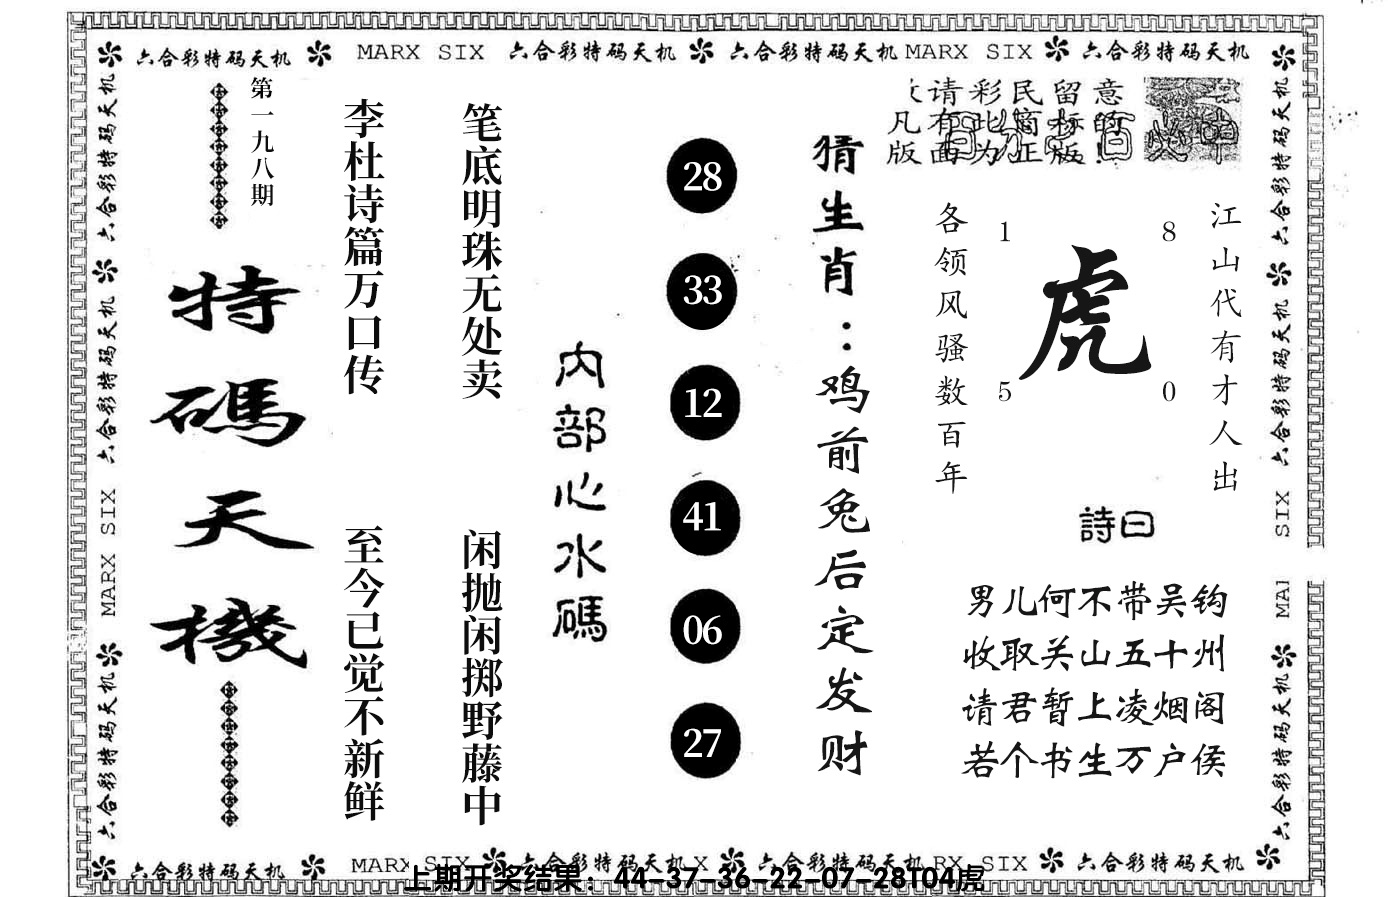 六合彩特码天机 MARX SIX 六合彩特码天机 六合彩特码天机 MARX SIX 六合彩特码天机
请彩民留意
凡有此简标的
版面为正版!
江山代有才人出
各领风骚数百年
1 8
虎
5 0
詩曰
男儿何不带吴钩
收取关山五十州
请君暂上凌烟阁
若个书生万户侯
猜生肖：鸡前兔后定发财
28
33
12
41
06
27
内部心水碼
笔底明珠无处卖 闲抛闲掷野藤中
李杜诗篇万口传 至今已觉不新鲜
第一九八期
特碼天機
六合彩特码天机 六合彩特码天机 MARX SIX 六合彩特码天机
六合彩特码天机 六合彩特码天机 SIX MAI 六合彩特码天机
六合彩特码天机 MARX SIX 六合彩特码天机 X 六合彩特码天机 RX SIX 六合彩特码天机
上期开奖结果：44-37-36-22-07-28T04虎